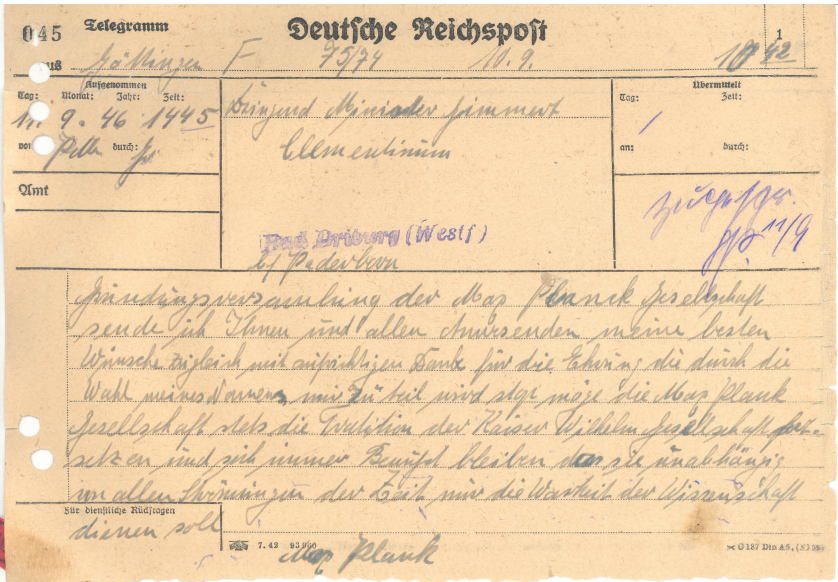 045 Telegramm Deutsche Reichspost 1
aus Göttingen F 75/74 10.9. 42
Aufgenommen
Tag: Monat: Jahr: Zeit:
11. 9. 46 1945
von: durch:
Amt
Dringend Minister Grimmert
Clementinum
Bad Driburg (Westf)
b/ Paderborn
Übermittelt
Tag: Zeit:
an: durch:
11/9
Gründungsversamlung der Max Planck Gesellschaft
sende ich Ihnen und allen Anwesenden meine besten
Wünsche zugleich mit aufrichtigen Danke für die Ehrung die durch die
Wahl meines Namens mir zu teil wird stop möge die Max Plank
Gesellschaft stets die Tradition der Kaiser Wilhelm Gesellschaft fort-
setzen und sich immer Bewußt bleiben das sie unabhängig
von allen Strömungen der Zeit nur die Warheit der Wissenschaft
dienen soll
Für dienstliche Rückfragen
Max Plank
7. 42
C 187 Din A5,